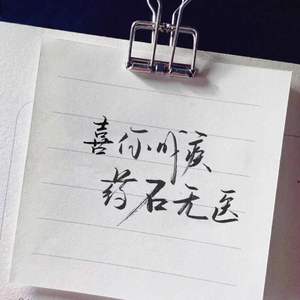 喜你成疾
药石无医